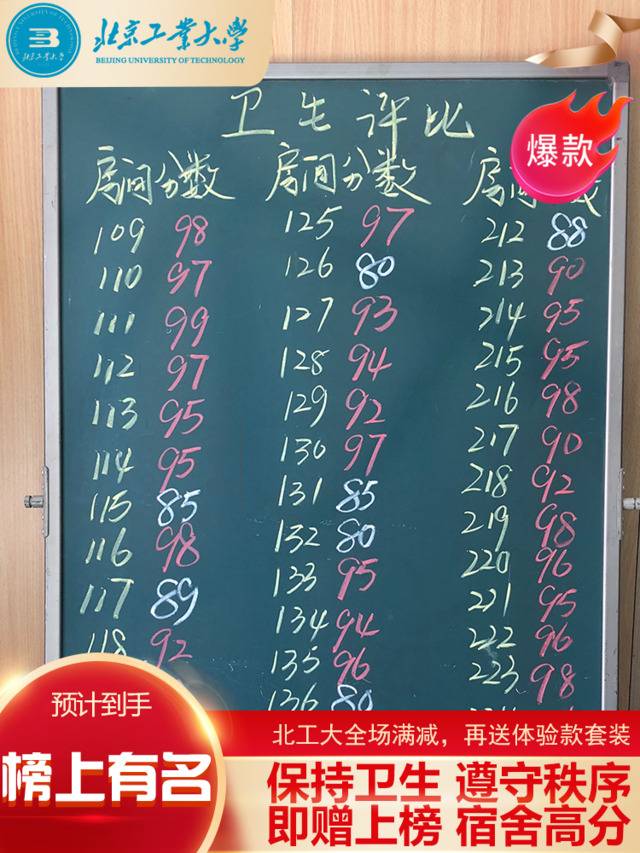 北京工业大学
BEIJING UNIVERSITY OF TECHNOLOGY
爆款
卫生评比
房间 分数 房间 分数 房间
109 98 125 97 212 88
110 97 126 80 213 90
111 99 127 93 214 95
112 97 128 94 215 95
113 95 129 92 216 98
114 95 130 97 217 90
115 85 131 85 218 92
116 98 132 80 219 98
117 89 133 95 220 96
118 92 134 94 221 95
135 96 222 96
136 80 223 98
预计到手
榜上有名
北工大全场满减，再送体验款套装
保持卫生 遵守秩序
即赠上榜 宿舍高分